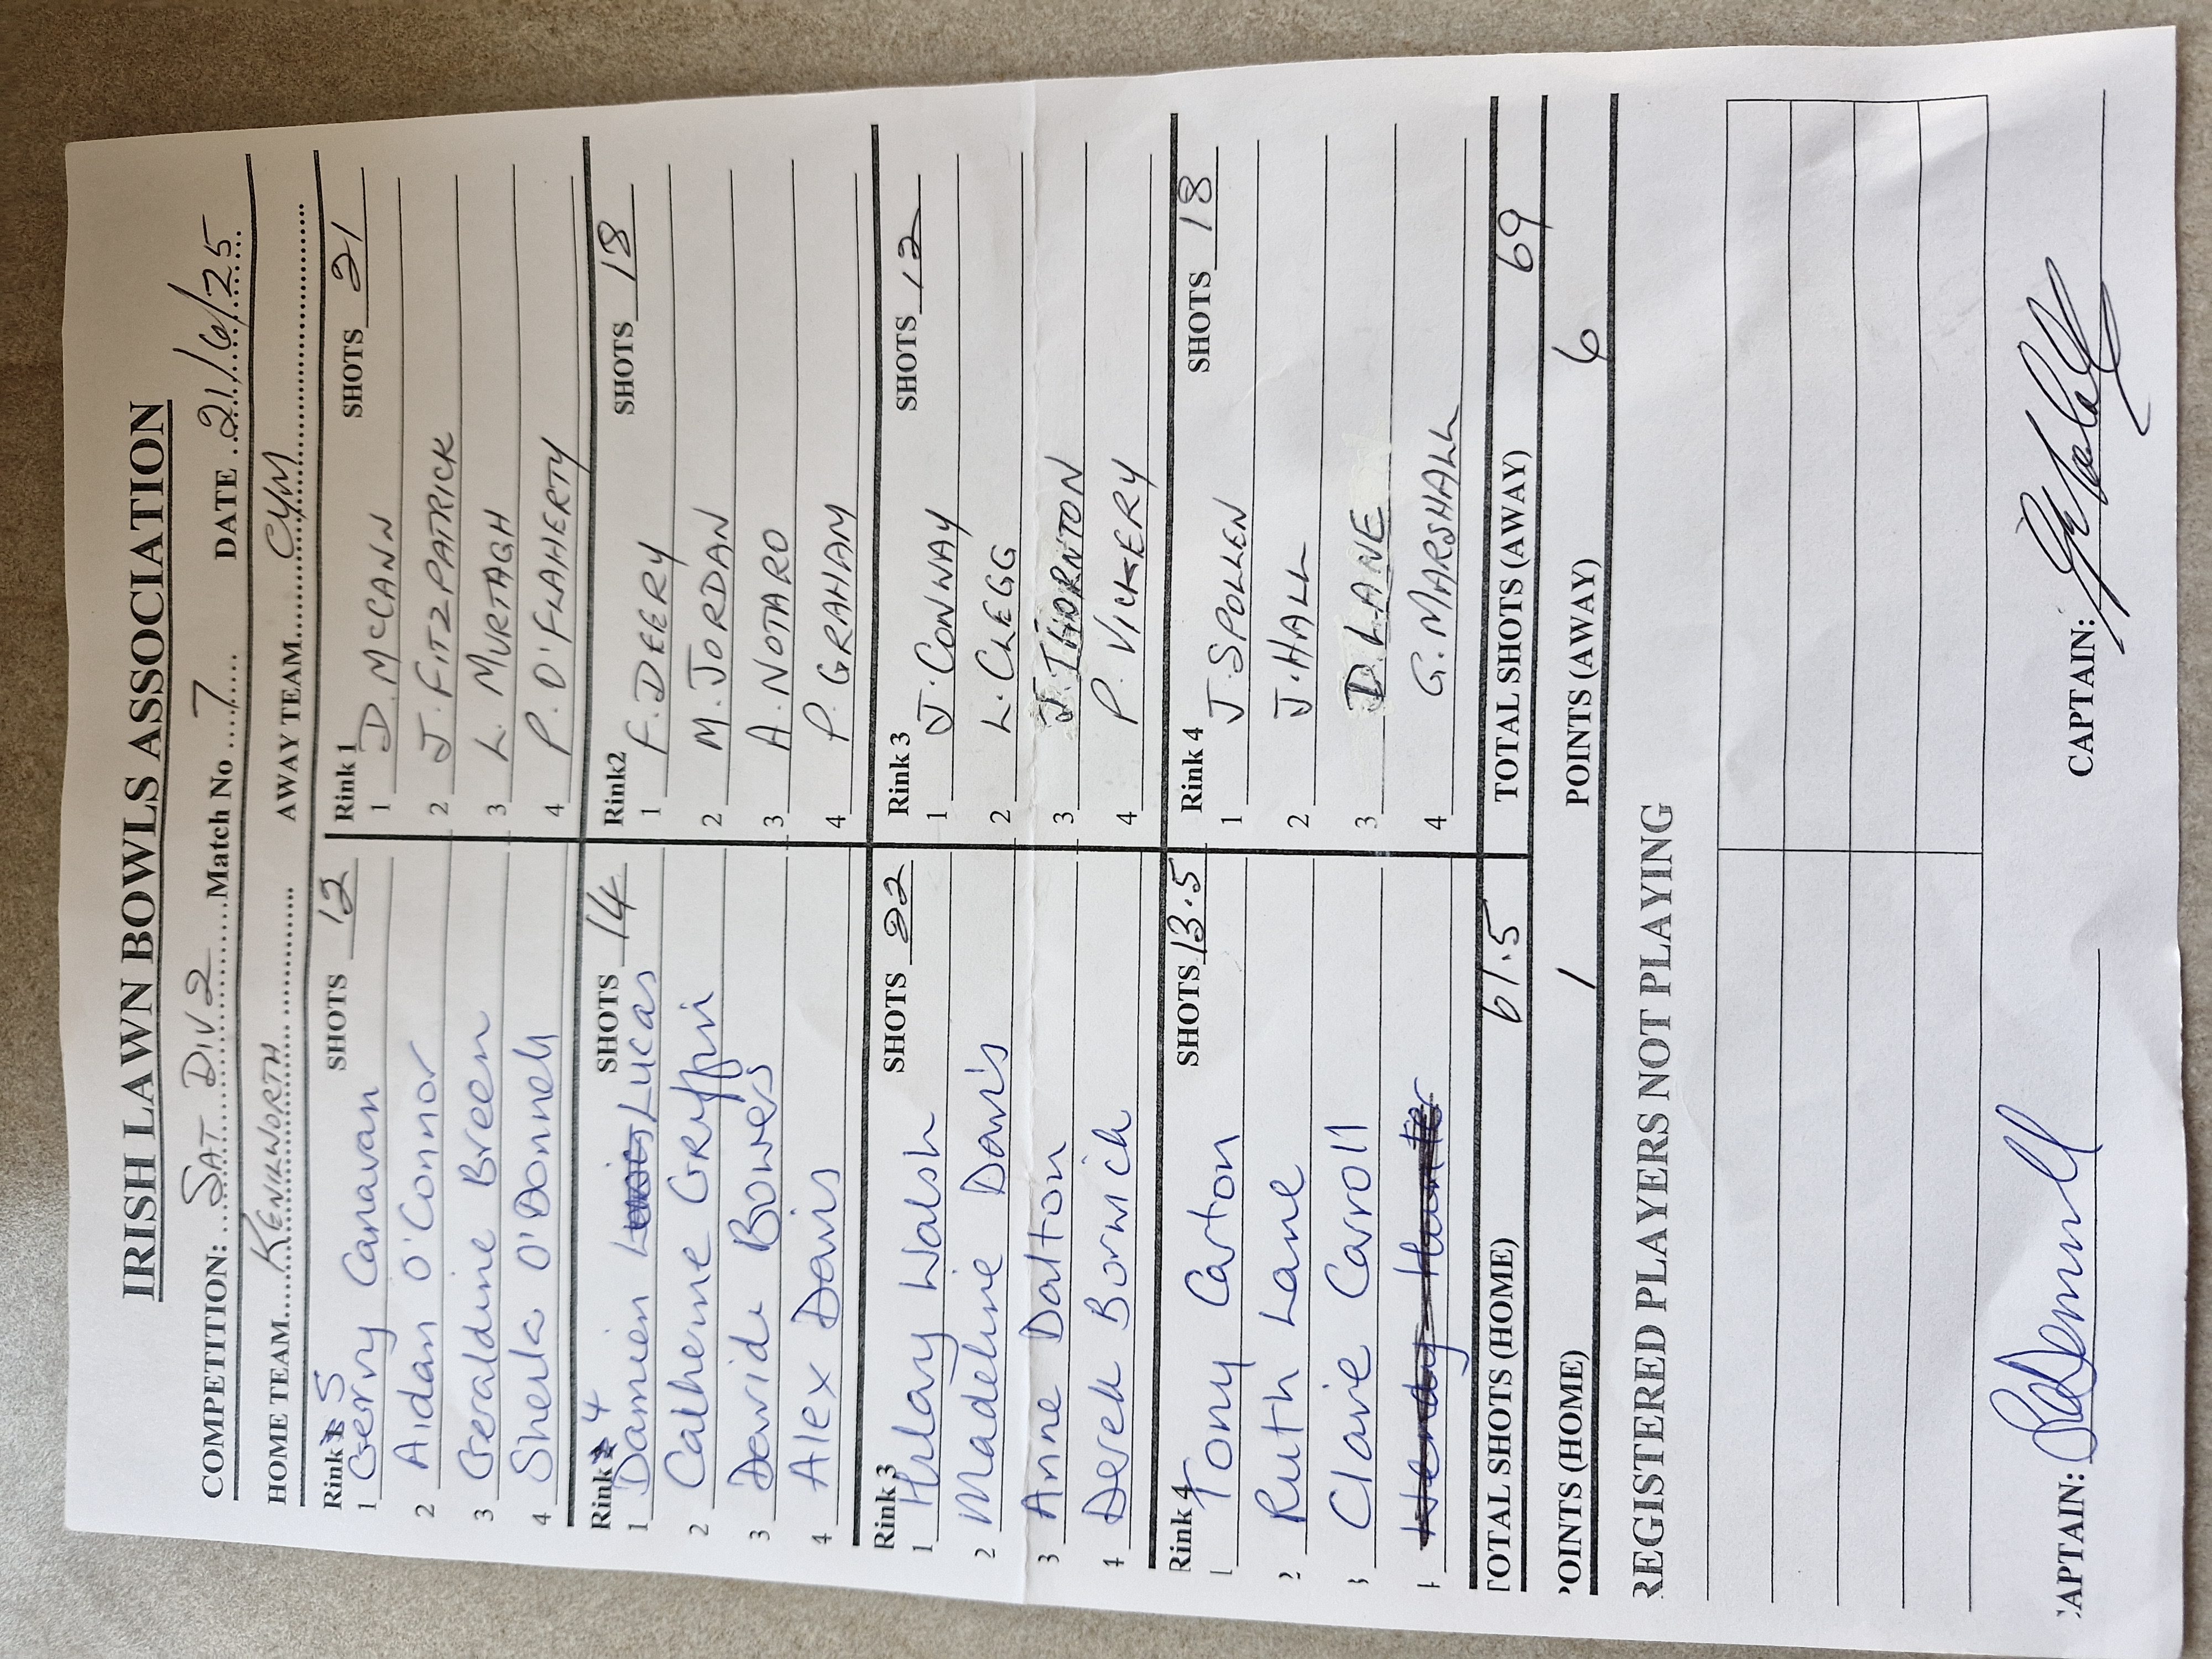 IRISH LAWN BOWLS ASSOCIATION
COMPETITION: SAT DIV 2 Match No 7 DATE 21/6/25
HOME TEAM KENILWORTH AWAY TEAM CYM
Rink 5 SHOTS 12
1 Gerry Canavan
2 Aidan O'Connor
3 Geraldine Breen
4 Sheila O'Donnell
Rink 1 SHOTS 21
1 D. McCANN
2 J. FITZPATRICK
3 L. MURTAGH
4 P. O'FLAHERTY
Rink 4 SHOTS 14
1 Damien Lucas
2 Catherine Griffin
3 David Bowers
4 Alex Davis
Rink2 SHOTS 18
1 F. DEERY
2 M. JORDAN
3 A. NOTARO
4 P. GRAHAM
Rink 3 SHOTS 22
1 Hilary Walsh
2 Madeline Davis
3 Anne Dalton
4 Derek Borwick
Rink 3 SHOTS 12
1 J. CONWAY
2 L. CLEGG
3 J. THORNTON
4 P. VICKERY
Rink 4 SHOTS 13.5
1 Tony Carton
2 Ruth Lane
3 Claire Carroll
4 Wendy Hunter
Rink 4 SHOTS 18
1 J. SPOLLEN
2 J. HALL
3 D. LANE
4 G. MARSHALL
TOTAL SHOTS (HOME) 61.5 TOTAL SHOTS (AWAY) 69
POINTS (HOME) 1 POINTS (AWAY) 6
REGISTERED PLAYERS NOT PLAYING
CAPTAIN: CAPTAIN: